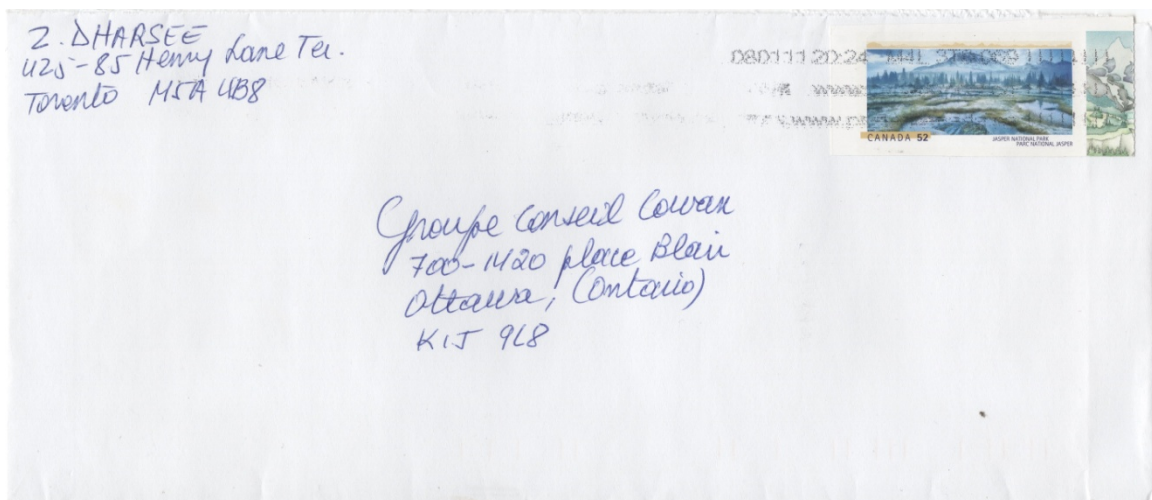 Z. DHARSEE
425-85 Henry Lane Ter.
Toronto M5A 4B8
080111 20:24
CANADA 52
JASPER NATIONAL PARK
PARC NATIONAL JASPER
Groupe Conseil Cowan
700-1420 place Blair
Ottawa, (Ontario)
K1J 9L8